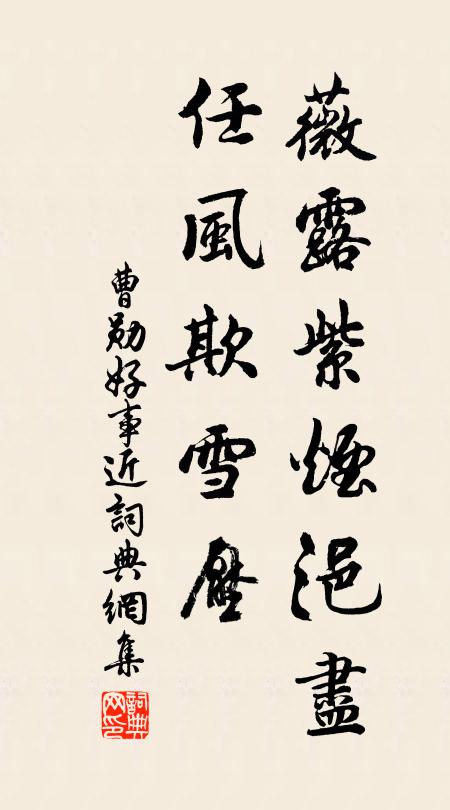 薇露紫煙浥盡
任風欺雪壓
曹勛好事近詞典網集
詞典网印